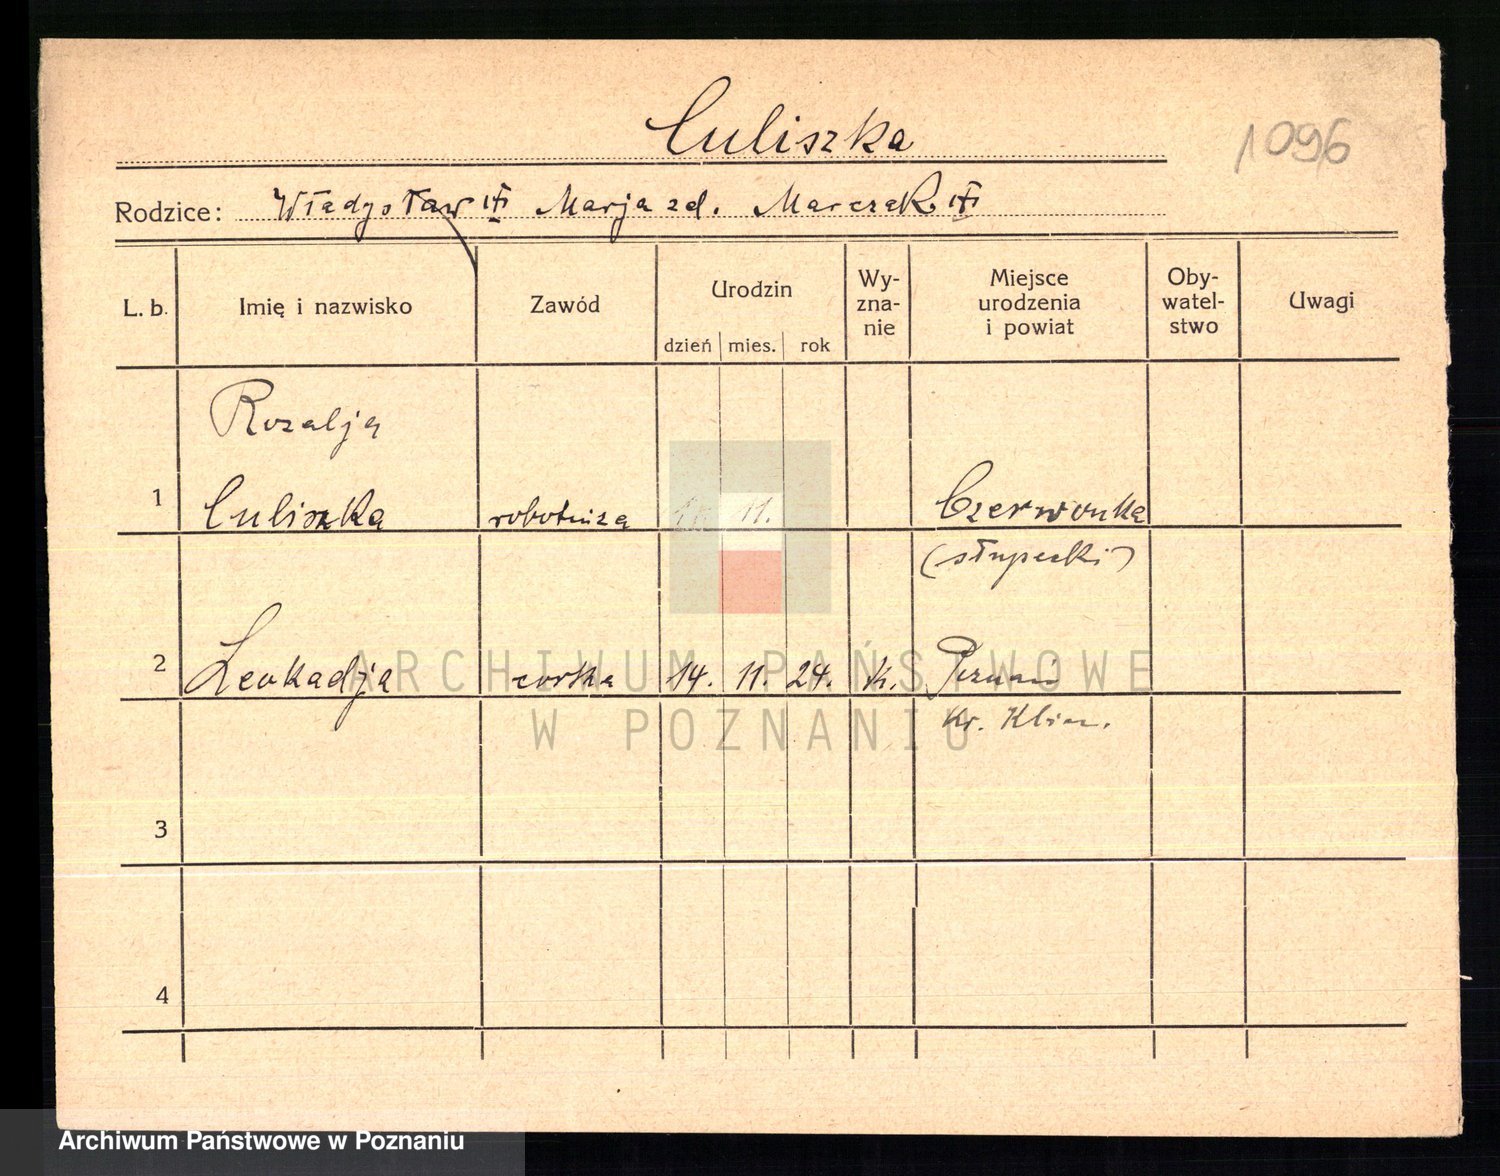 Culiszka
1096
Rodzice: Władysław Marja zd. Marczak
L. b. Imię i nazwisko Zawód Urodzin dzień mies. rok Wy-zna-nie Miejsce urodzenia i powiat Oby-watel-stwo Uwagi
Rozalja
1 Culiszka robotnica 11. Czerwonka
(słupecki)
2 Leokadja córka 14. 11. 24. k. Poznań
Kr. Klin.
3
4
ARCHIWUM PAŃSTWOWE
W POZNANIU
Archiwum Państwowe w Poznaniu